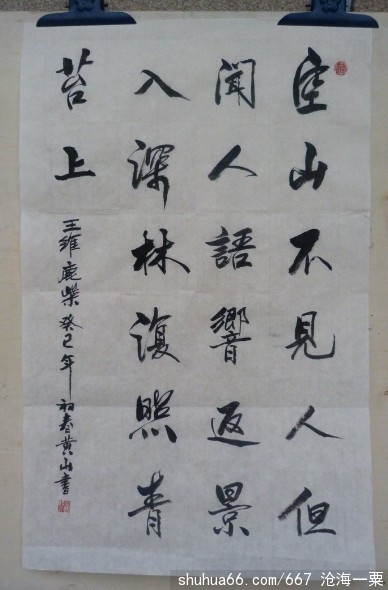 空山不見人但
聞人語響返景
入深林復照青
苔上
王維鹿柴癸巳年初春黄山書
shuhua66.com/667 沧海一粟